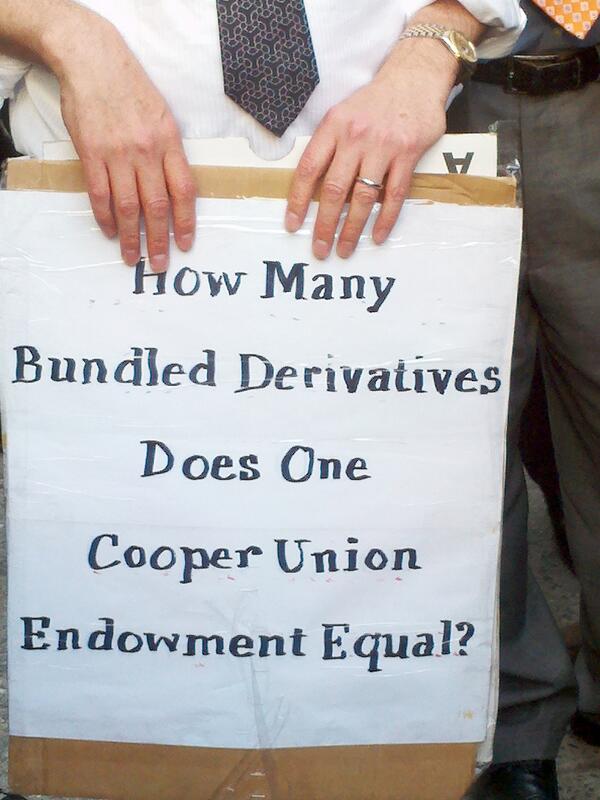 A
How Many
Bundled Derivatives
Does One
Cooper Union
Endowment Equal?